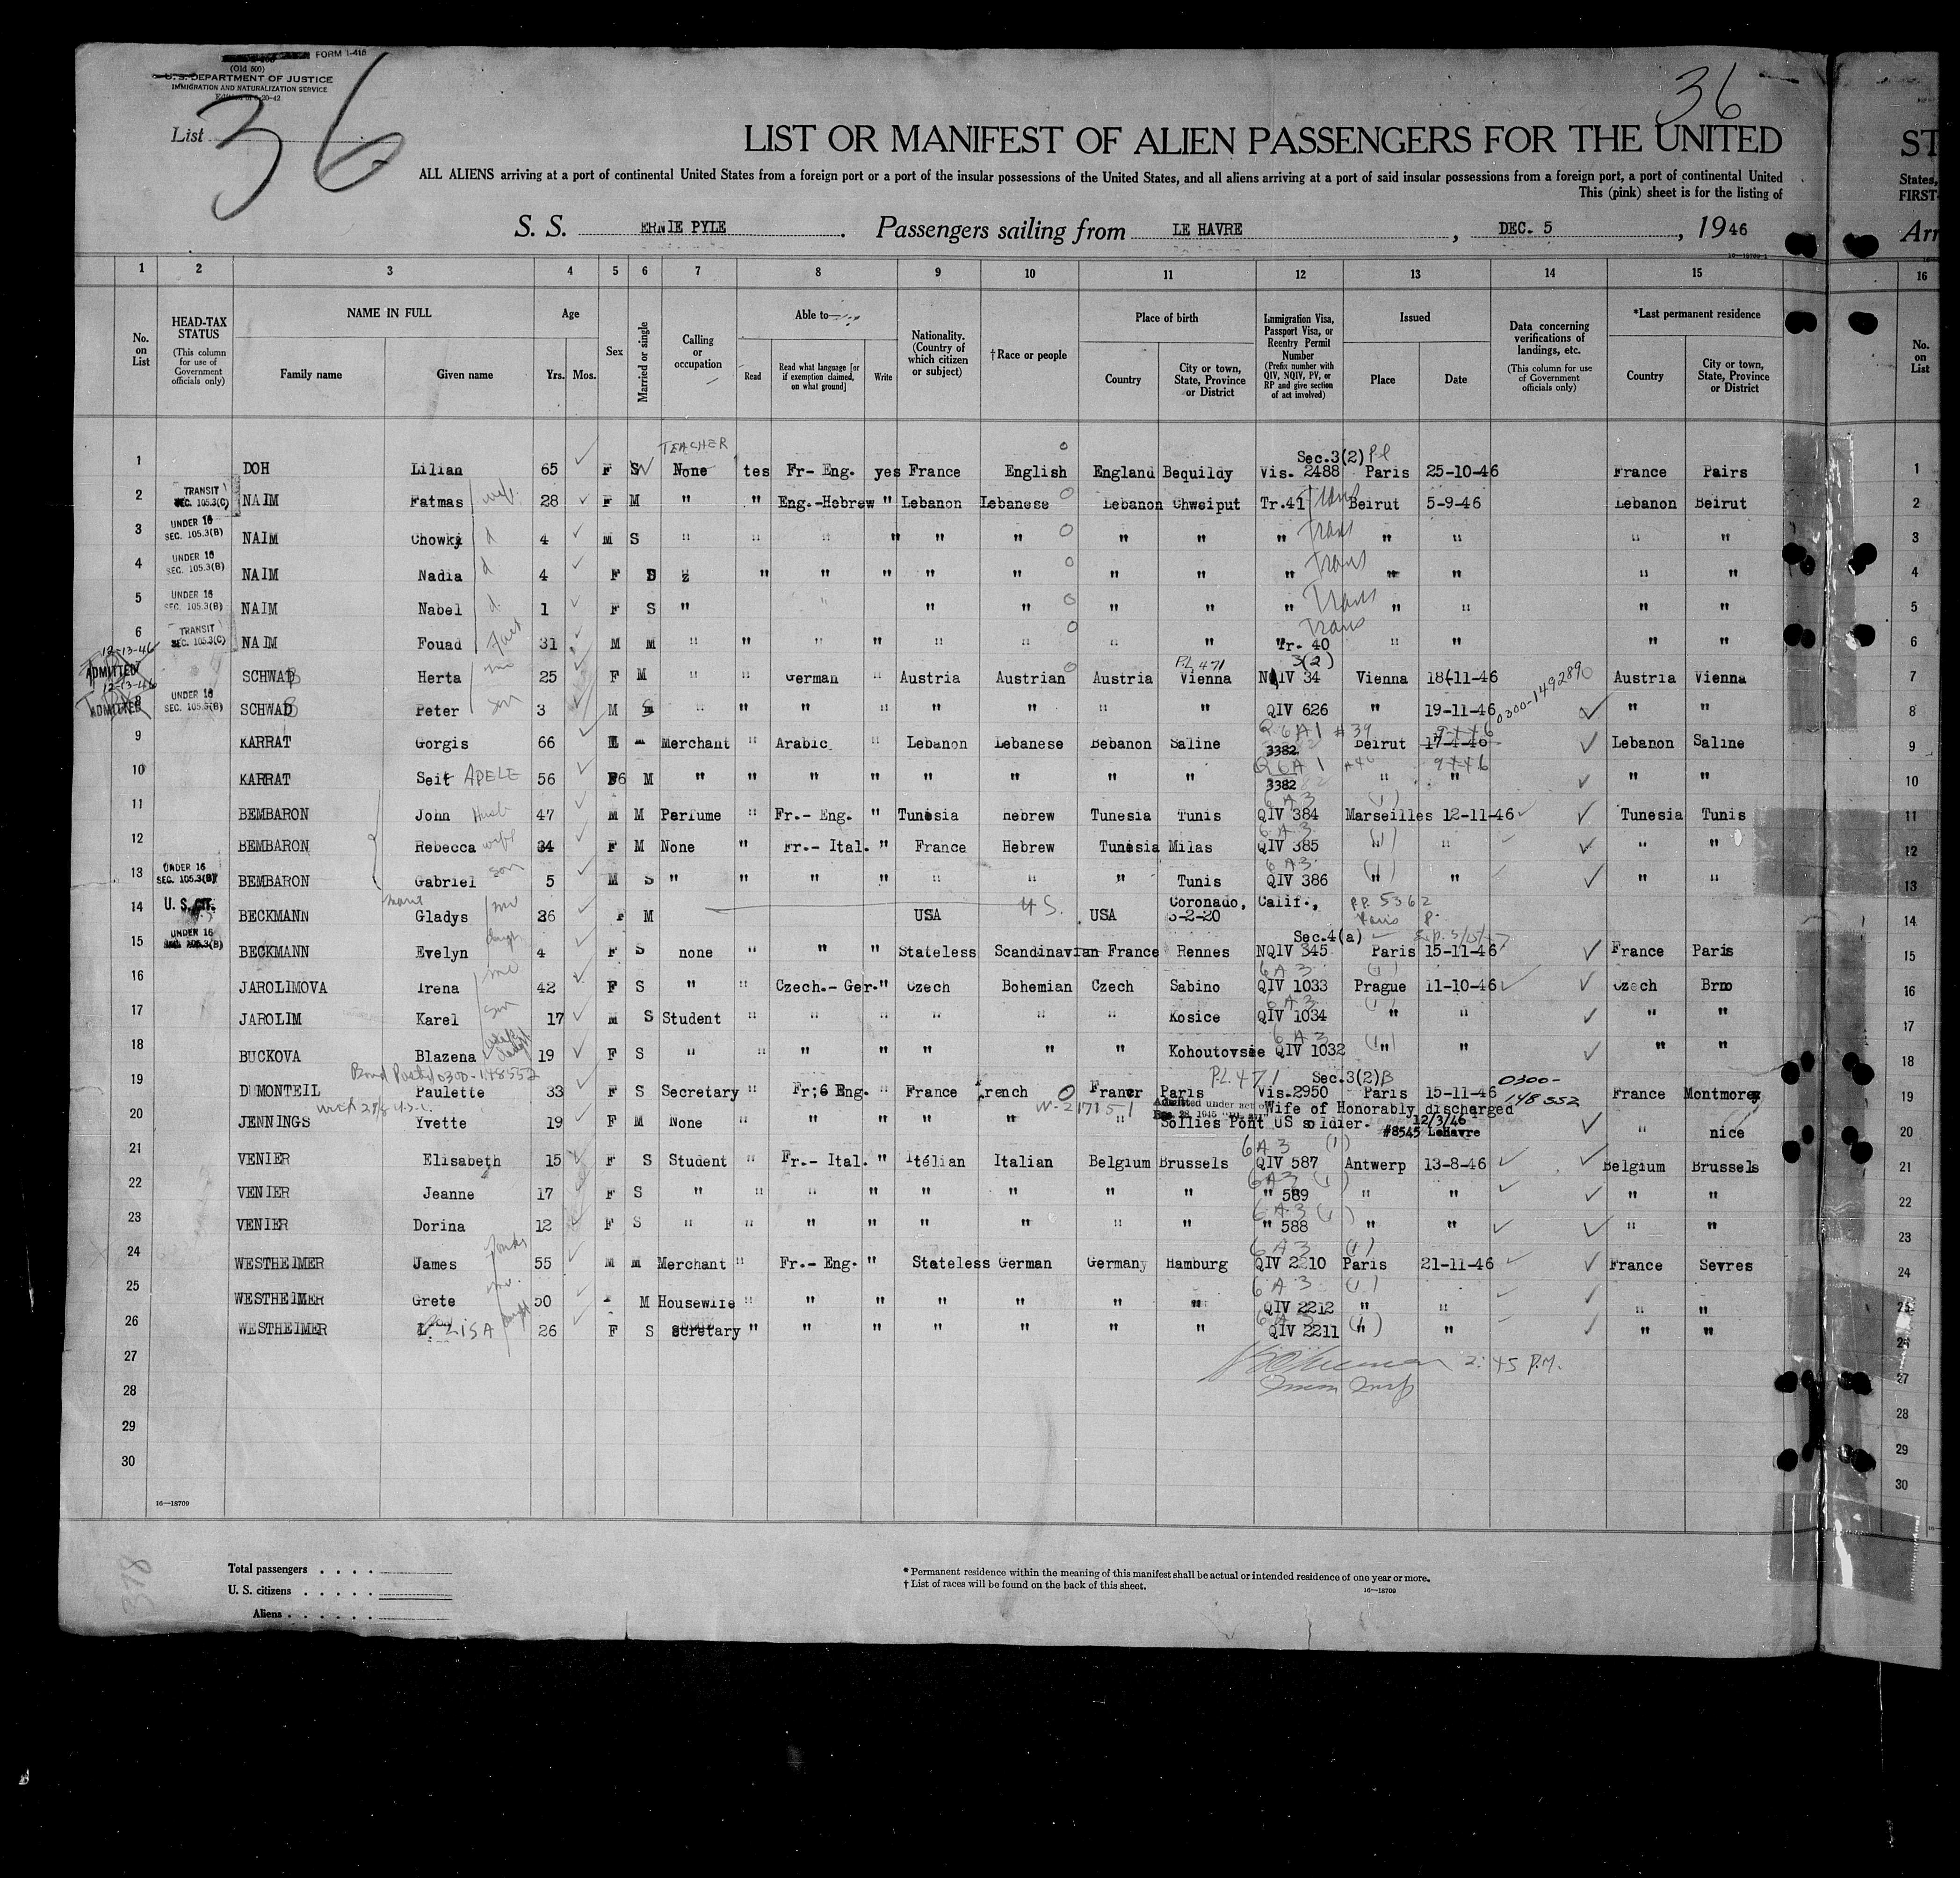 FORM I-416
(Old 500)
U. S. DEPARTMENT OF JUSTICE
IMMIGRATION AND NATURALIZATION SERVICE
List 36
36
LIST OR MANIFEST OF ALIEN PASSENGERS FOR THE UNITED
ST
ALL ALIENS arriving at a port of continental United States from a foreign port or a port of the insular possessions of the United States, and all aliens arriving at a port of said insular possessions from a foreign port, a port of continental United
States,
This (pink) sheet is for the listing of
FIRST-
S. S. ERNIE PYLE. Passengers sailing from LE HAVRE, DEC. 5, 1946
Arr
16—18709-1
1 2 3 4 5 6 7 8 9 10 11 12 13 14 15 16
No. on List
HEAD-TAX STATUS (This column for use of Government officials only)
NAME IN FULL Family name Given name
Age Yrs. Mos.
Sex
Married or single
Calling or occupation
Able to Read Read what language [or if exemption claimed, on what ground] Write
Nationality. (Country of which citizen or subject)
†Race or people
Place of birth Country City or town, State, Province or District
Immigration Visa, Passport Visa, or Reentry Permit Number (Prefix number with QIV, NQIV, PV, or RP and give section of act involved)
Issued Place Date
Data concerning verifications of landings, etc. (This column for use of Government officials only)
*Last permanent residence Country City or town, State, Province or District
No. on List
TEACHER Sec.3(2)
1 DOH Lilian 65 F S None tes Fr- Eng. yes France English England Bequildy Vis. 2488 Paris 25-10-46 France Pairs 1
2 TRANSIT SEC. 105.3(C) NAIM Fatmas 28 F M " " Eng.-Hebrew " Lebanon Lebanese Lebanon Chweiput Tr.41 Trans Beirut 5-9-46 Lebanon Beirut 2
3 UNDER 16 SEC. 105.3(B) NAIM Chowki d 4 M S " " " " " " " " " Trans " " " " 3
4 UNDER 16 SEC. 105.3(B) NAIM Nadia d 4 F " " " " " " " " Trans " " " " 4
5 UNDER 16 SEC. 105.3(B) NAIM Nabel d. 1 F S " " " " " " " Trans " " " " 5
6 TRANSIT SEC. 105.3(C) NAIM Fouad 31 M M " " " " " " " " Trans Tr. 40 " " " " 6
12-13-46 ADMITTED P.L 471 3(2)
7 SCHWAB Herta 25 F M " " German " Austria Austrian Austria Vienna NQIV 34 Vienna 18-11-46 Austria Vienna 7
12-13-46 ADMITTED 0300-1492890
8 UNDER 16 SCHWAB Peter son 3 M S " " " " " " " " QIV 626 " 19-11-46 " " 8
Q 6A1 #39 9-4-46
9 KARRAT Gorgis 66 Merchant " Arabic " Lebanon Lebanese Bebanon Saline 3382 Beirut 17-4-46 Lebanon Saline 9
Q 6A1 9-4-46
10 KARRAT Seit ADELE 56 M " " " " " " " " 3382 " " " " 10
6A3 (1)
11 BEMBARON John Husb 47 M M Perfume " Fr.- Eng. " Tunesia hebrew Tunesia Tunis QIV 384 Marseilles 12-11-46 Tunesia Tunis 11
6A3
12 BEMBARON Rebecca wife 34 F M None " Fr.- Ital. " France Hebrew Tunesia Milas QIV 385 " " " " 12
6A3
13 UNDER 16 SEC. 105.3(B) BEMBARON Gabriel son 5 M S " " " " " " " Tunis QIV 386 " " " " 13
14 U. S. CIT. BECKMANN Gladys 26 F M USA U.S. USA Coronado, Calif., 5-2-20 P.P. 5362 Paris 14
Sec.4(a)
15 UNDER 16 SEC. 105.3(B) BECKMANN Evelyn daugh 4 F S none " " " Stateless Scandinavian France Rennes NQIV 345 Paris 15-11-46 France Paris 15
6A3 (1)
16 JAROLIMOVA Irena 42 F S " " Czech.- Ger." Czech Bohemian Czech Sabino QIV 1033 Prague 11-10-46 Czech Brno 16
6A3 (1)
17 JAROLIM Karel 17 M S Student " " " " " " Kosice QIV 1034 " " " " 17
6A3
18 BUCKOVA Blazena 19 F S " " " " " " " Kohoutovsie QIV 1032 " " " " 18
Bond Posted 0300-148552 P.L. 471 Sec.3(2)B
19 DUMONTEIL Paulette 33 F S Secretary " Fr;6 Eng. " France french France Paris Vis.2950 Paris 15-11-46 0300-148552 France Montmorey 19
Wife of Honorably discharged
20 JENNINGS Yvette 19 F M None " " " " " " Sollies Pont US soldier. 12/3/46 #8545 LeHavre " nice 20
6A3 (1)
21 VENIER Elisabeth 15 F S Student " Fr.- Ital. " Italian Italian Belgium Brussels QIV 587 Antwerp 13-8-46 Belgium Brussels 21
6A3 (1)
22 VENIER Jeanne 17 F S " " " " " " " " " 589 " " " " 22
6A3 (1)
23 VENIER Dorina 12 F S " " " " " " " " " 588 " " " " 23
6A3 (1)
24 WESTHEIMER James 55 M M Merchant " Fr.- Eng. " Stateless German Germany Hamburg QIV 2210 Paris 21-11-46 France Sevres 24
6A3 (1)
25 WESTHEIMER Grete 50 M Housewife " " " " " " " QIV 2212 " " " " 25
6A3 (1)
26 WESTHEIMER LISA 26 F S secretary " " " " " " " QIV 2211 " " " " 26
27 2:45 P.M. 27
28 28
29 29
30 30
16—18709
Total passengers
U. S. citizens
Aliens
378
* Permanent residence within the meaning of this manifest shall be actual or intended residence of one year or more.
† List of races will be found on the back of this sheet.
16—18709